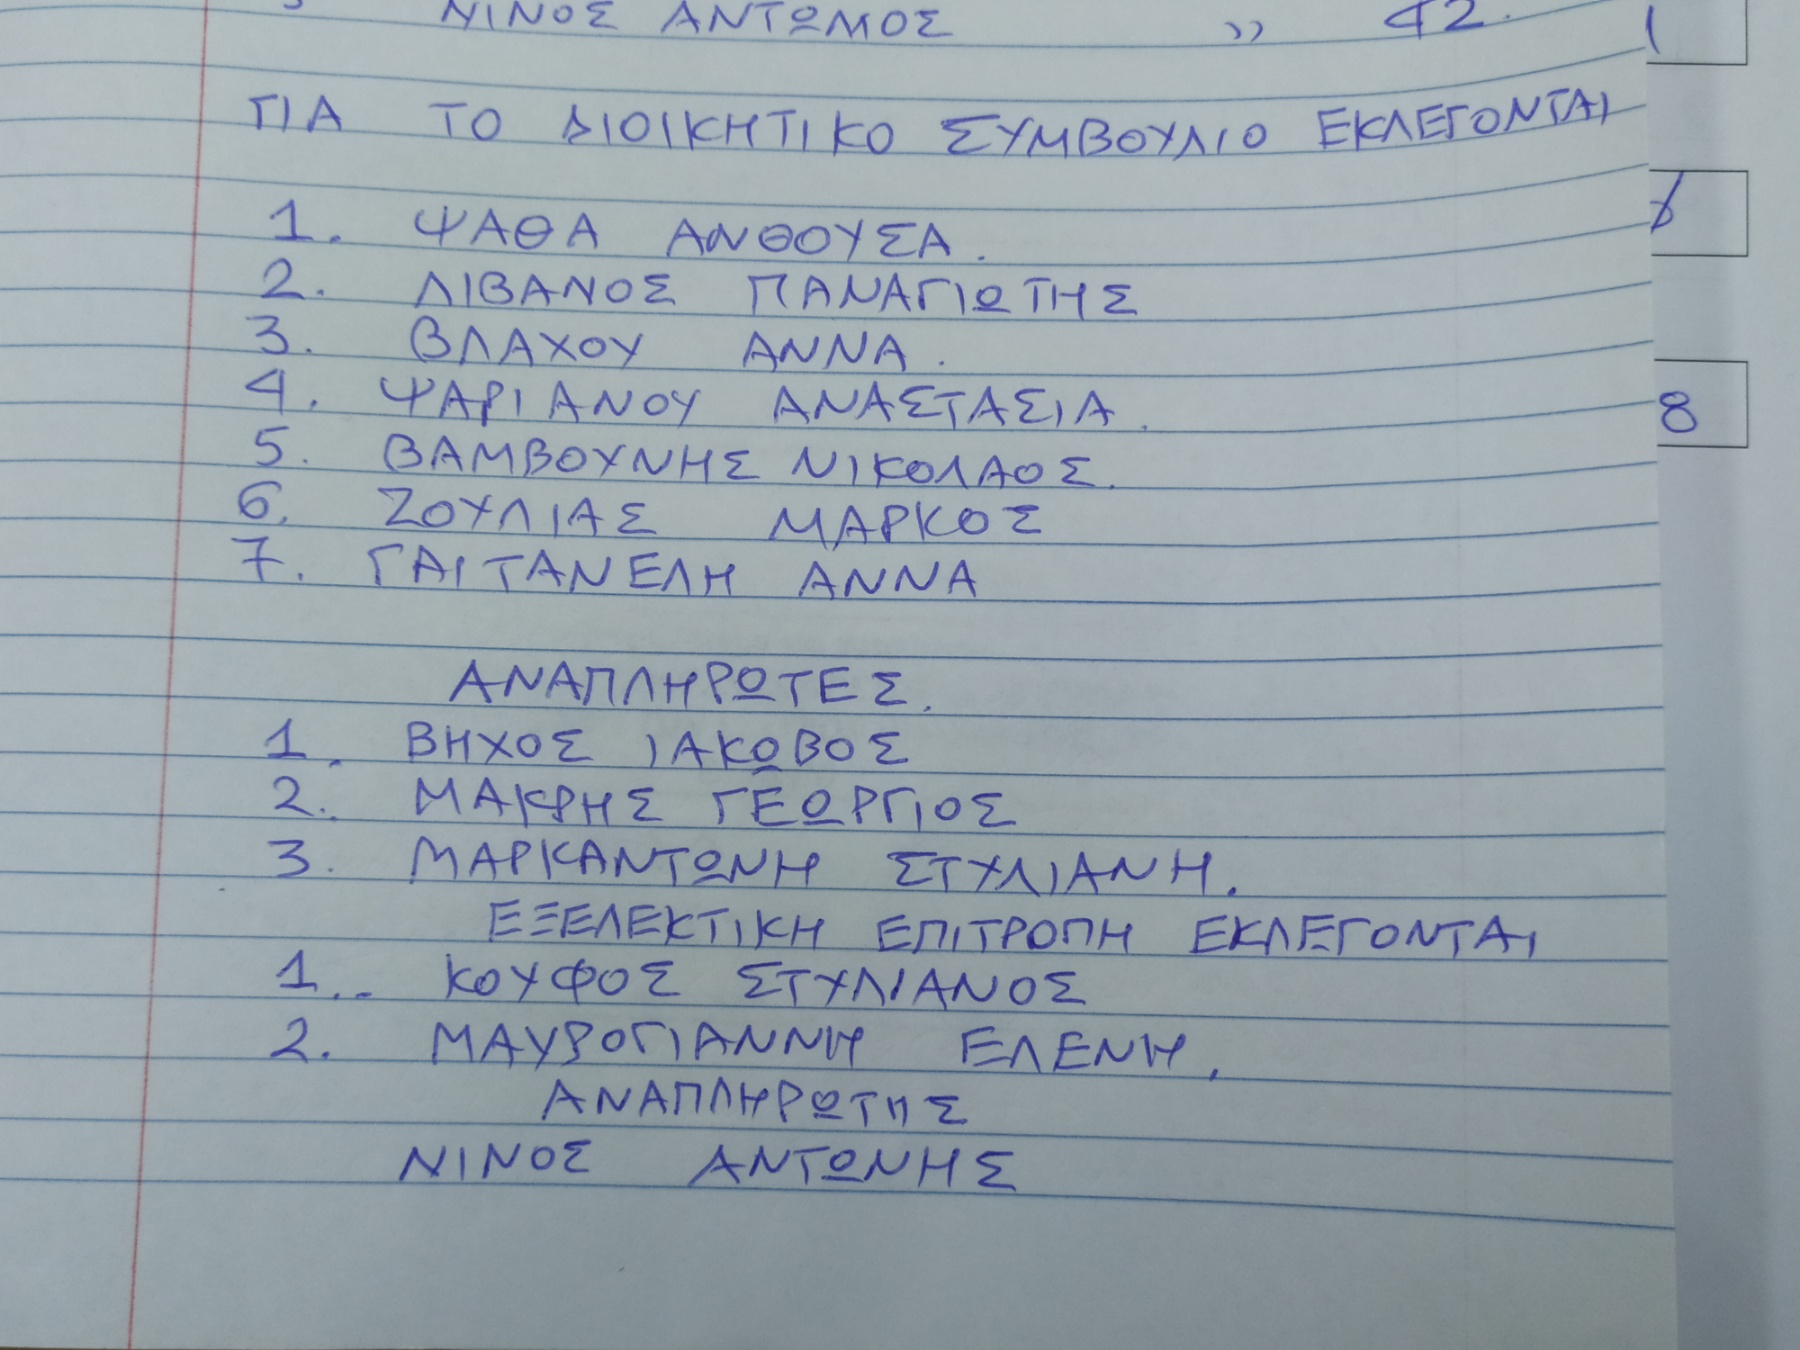 ΝΙΝΟΣ ΑΝΤΩΜΟΣ ›› 42.
ΓΙΑ ΤΟ ΔΙΟΙΚΗΤΙΚΟ ΣΥΜΒΟΥΛΙΟ ΕΚΛΕΓΟΝΤΑΙ
1. ΨΑΘΑ ΑΝΘΟΥΣΑ.
2. ΛΙΒΑΝΟΣ ΠΑΝΑΓΙΩΤΗΣ
3. ΒΛΑΧΟΥ ΑΝΝΑ.
4. ΨΑΡΙΑΝΟΥ ΑΝΑΣΤΑΣΙΑ.
8
5. ΒΑΜΒΟΥΝΗΣ ΝΙΚΟΛΑΟΣ.
6. ΖΟΥΛΙΑΣ ΜΑΡΚΟΣ
7. ΓΑΙΤΑΝΕΛΗ ΑΝΝΑ
ΑΝΑΠΛΗΡΩΤΕΣ.
1. ΒΗΧΟΣ ΙΑΚΩΒΟΣ
2. ΜΑΚΡΗΣ ΓΕΩΡΓΙΟΣ
3. ΜΑΡΚΑΝΤΩΝΗ ΣΤΥΛΙΑΝΗ.
ΕΞΕΛΕΚΤΙΚΗ ΕΠΙΤΡΟΠΗ ΕΚΛΕΓΟΝΤΑΙ
1.. ΚΟΥΦΟΣ ΣΤΥΛΙΑΝΟΣ
2. ΜΑΥΡΟΓΙΑΝΝΗ ΕΛΕΝΗ.
ΑΝΑΠΛΗΡΩΤΗΣ
ΝΙΝΟΣ ΑΝΤΩΝΗΣ